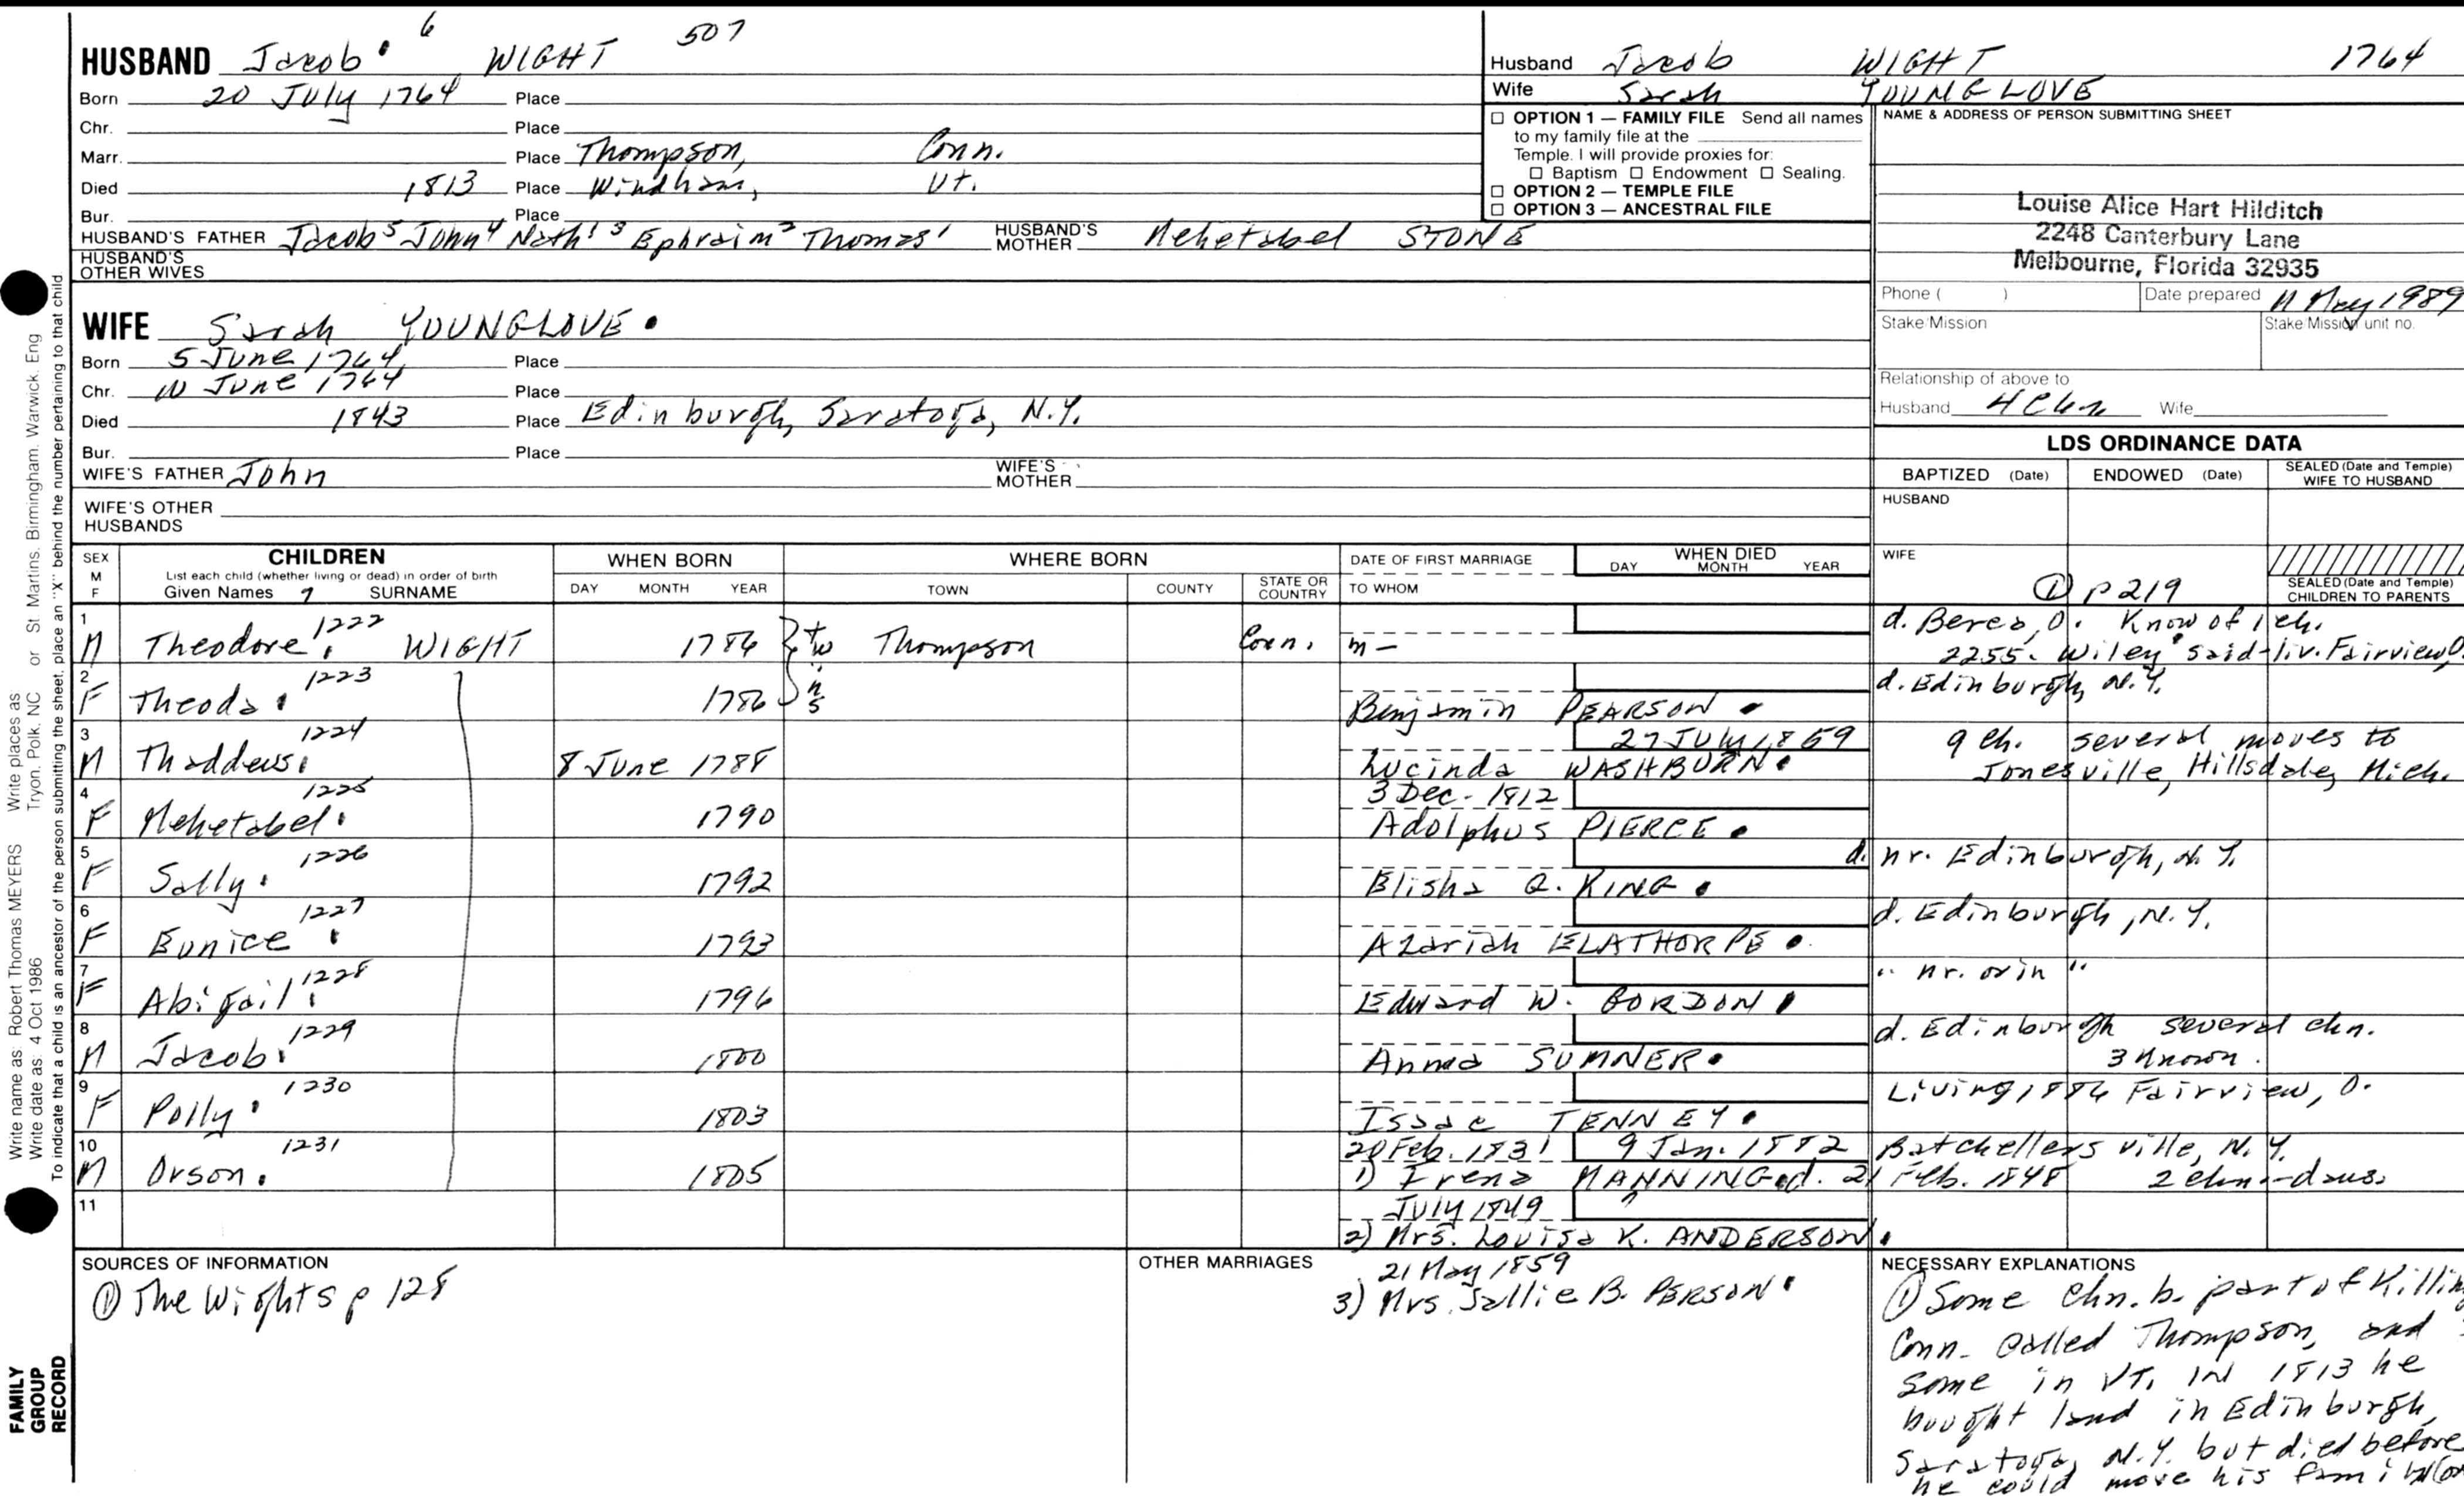 HUSBAND Jacob 6 WIGHT 507
Born 20 July 1764 Place
Chr. Place
Marr. Place Thompson, Conn.
Died 1813 Place Windham, Vt.
Bur. Place
HUSBAND'S FATHER Jacob5 John4 Nathl3 Ephraim2 Thomas1 HUSBAND'S MOTHER Mehetabel STONE
HUSBAND'S OTHER WIVES
Husband Jacob WIGHT 1764
Wife Sarah YOUNGLOVE
☐ OPTION 1 — FAMILY FILE Send all names
to my family file at the
Temple. I will provide proxies for:
☐ Baptism ☐ Endowment ☐ Sealing.
☐ OPTION 2 — TEMPLE FILE
☐ OPTION 3 — ANCESTRAL FILE
NAME & ADDRESS OF PERSON SUBMITTING SHEET
Louise Alice Hart Hilditch
2248 Canterbury Lane
Melbourne, Florida 32935
Phone ( ) Date prepared 11 May 1989
Stake/Mission Stake/Mission unit no.
Relationship of above to
Husband Wife
WIFE Sarah YOUNGLOVE
Born 5 June 1764 Place
Chr. 10 June 1764 Place
Died 1843 Place Edinburgh, Saratoga, N.Y.
Bur. Place
WIFE'S FATHER John WIFE'S MOTHER
WIFE'S OTHER HUSBANDS
LDS ORDINANCE DATA
BAPTIZED (Date) ENDOWED (Date) SEALED (Date and Temple) WIFE TO HUSBAND
HUSBAND
WIFE
① p 219
SEALED (Date and Temple) CHILDREN TO PARENTS
SEX M F
CHILDREN
List each child (whether living or dead) in order of birth
Given Names 7 SURNAME
WHEN BORN DAY MONTH YEAR
WHERE BORN TOWN COUNTY STATE OR COUNTRY
DATE OF FIRST MARRIAGE
TO WHOM
WHEN DIED DAY MONTH YEAR
1 M Theodore 1222 WIGHT 1786 twins Thompson Conn. m - d. Berea, O. Know of 1 ch.
2255. Wiley said-liv. Fairview, O.
2 F Theoda 1223 1786 Benjamin PEARSON d. Edinburgh, N.Y.
3 M Thaddeus 1224 8 June 1788 27 July 1859 Lucinda WASHBURN 9 ch. several moves to
Jonesville, Hillsdale, Mich.
4 F Mehetabel 1225 1790 3 Dec. 1812 Adolphus PIERCE
5 F Sally 1226 1792 Elisha Q. KING d. nr. Edinburgh, N.Y.
6 F Eunice 1227 1793 Azariah ELATHORPE d. Edinburgh, N.Y.
7 F Abigail 1228 1796 Edward W. GORDON " nr. or in "
8 M Jacob 1229 1800 Anna SUMNER d. Edinburgh several chn.
3 known.
9 F Polly 1230 1803 Isaac TENNEY Living 1886 Fairview, O.
10 M Orson 1231 1805 20 Feb. 1831 9 Jan. 1882 Batchellersville, N.Y.
1) Irena MANNING d. 21 Feb. 1848 2 chn-daus.
11 July 1849
2) Mrs. Louisa K. ANDERSON
SOURCES OF INFORMATION
① The Wights p 128
OTHER MARRIAGES
21 May 1859
3) Mrs. Sallie B. PERSON
NECESSARY EXPLANATIONS
① Some chn. b. part of Killing
Conn. called Thompson, and
some in VT. IN 1813 he
bought land in Edinburgh,
Saratoga, N.Y. but died before
he could move his family
Write name as: Robert Thomas MEYERS Write places as Tryon, Polk, NC or St Martins, Birmingham, Warwick, Eng
Write date as: 4 Oct 1986
To indicate that a child is an ancestor of the person submitting the sheet, place an "X" behind the number pertaining to that child
FAMILY
GROUP
RECORD